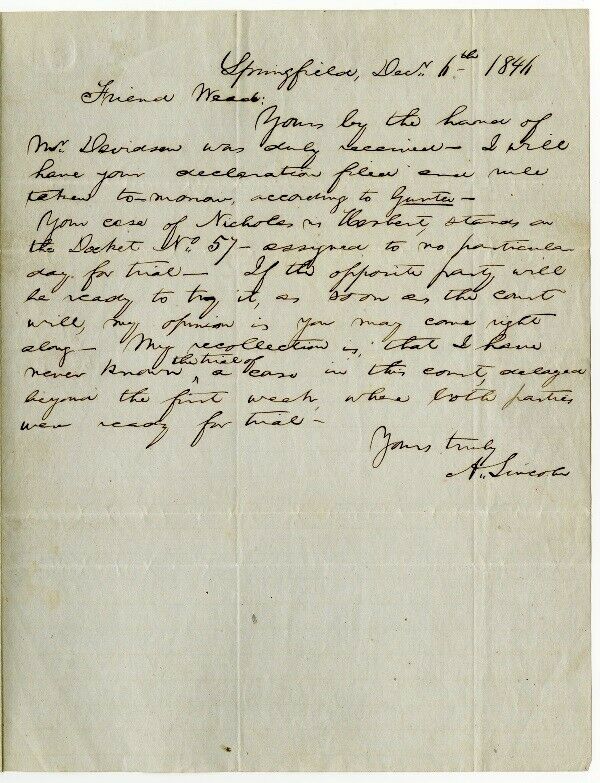 Springfield, Decr. 6th 1846
Friend Wead:
Yours by the hand of
Mr. Davidson was duly received — I will
have your declaration filed and rule
taken to-morrow, according to Gunter —
Your case of Nicholas vs Herbert, stands on
the Docket No. 57 — assigned to no particular
day for trial — If the opposite party will
be ready to try it, as soon as the court
will, my opinion is you may come right
along — My recollection is, that I have
never known the trial of a case in this court, delayed
beyond the first week, where both parties
were ready for trial —
Yours truly
A. Lincoln